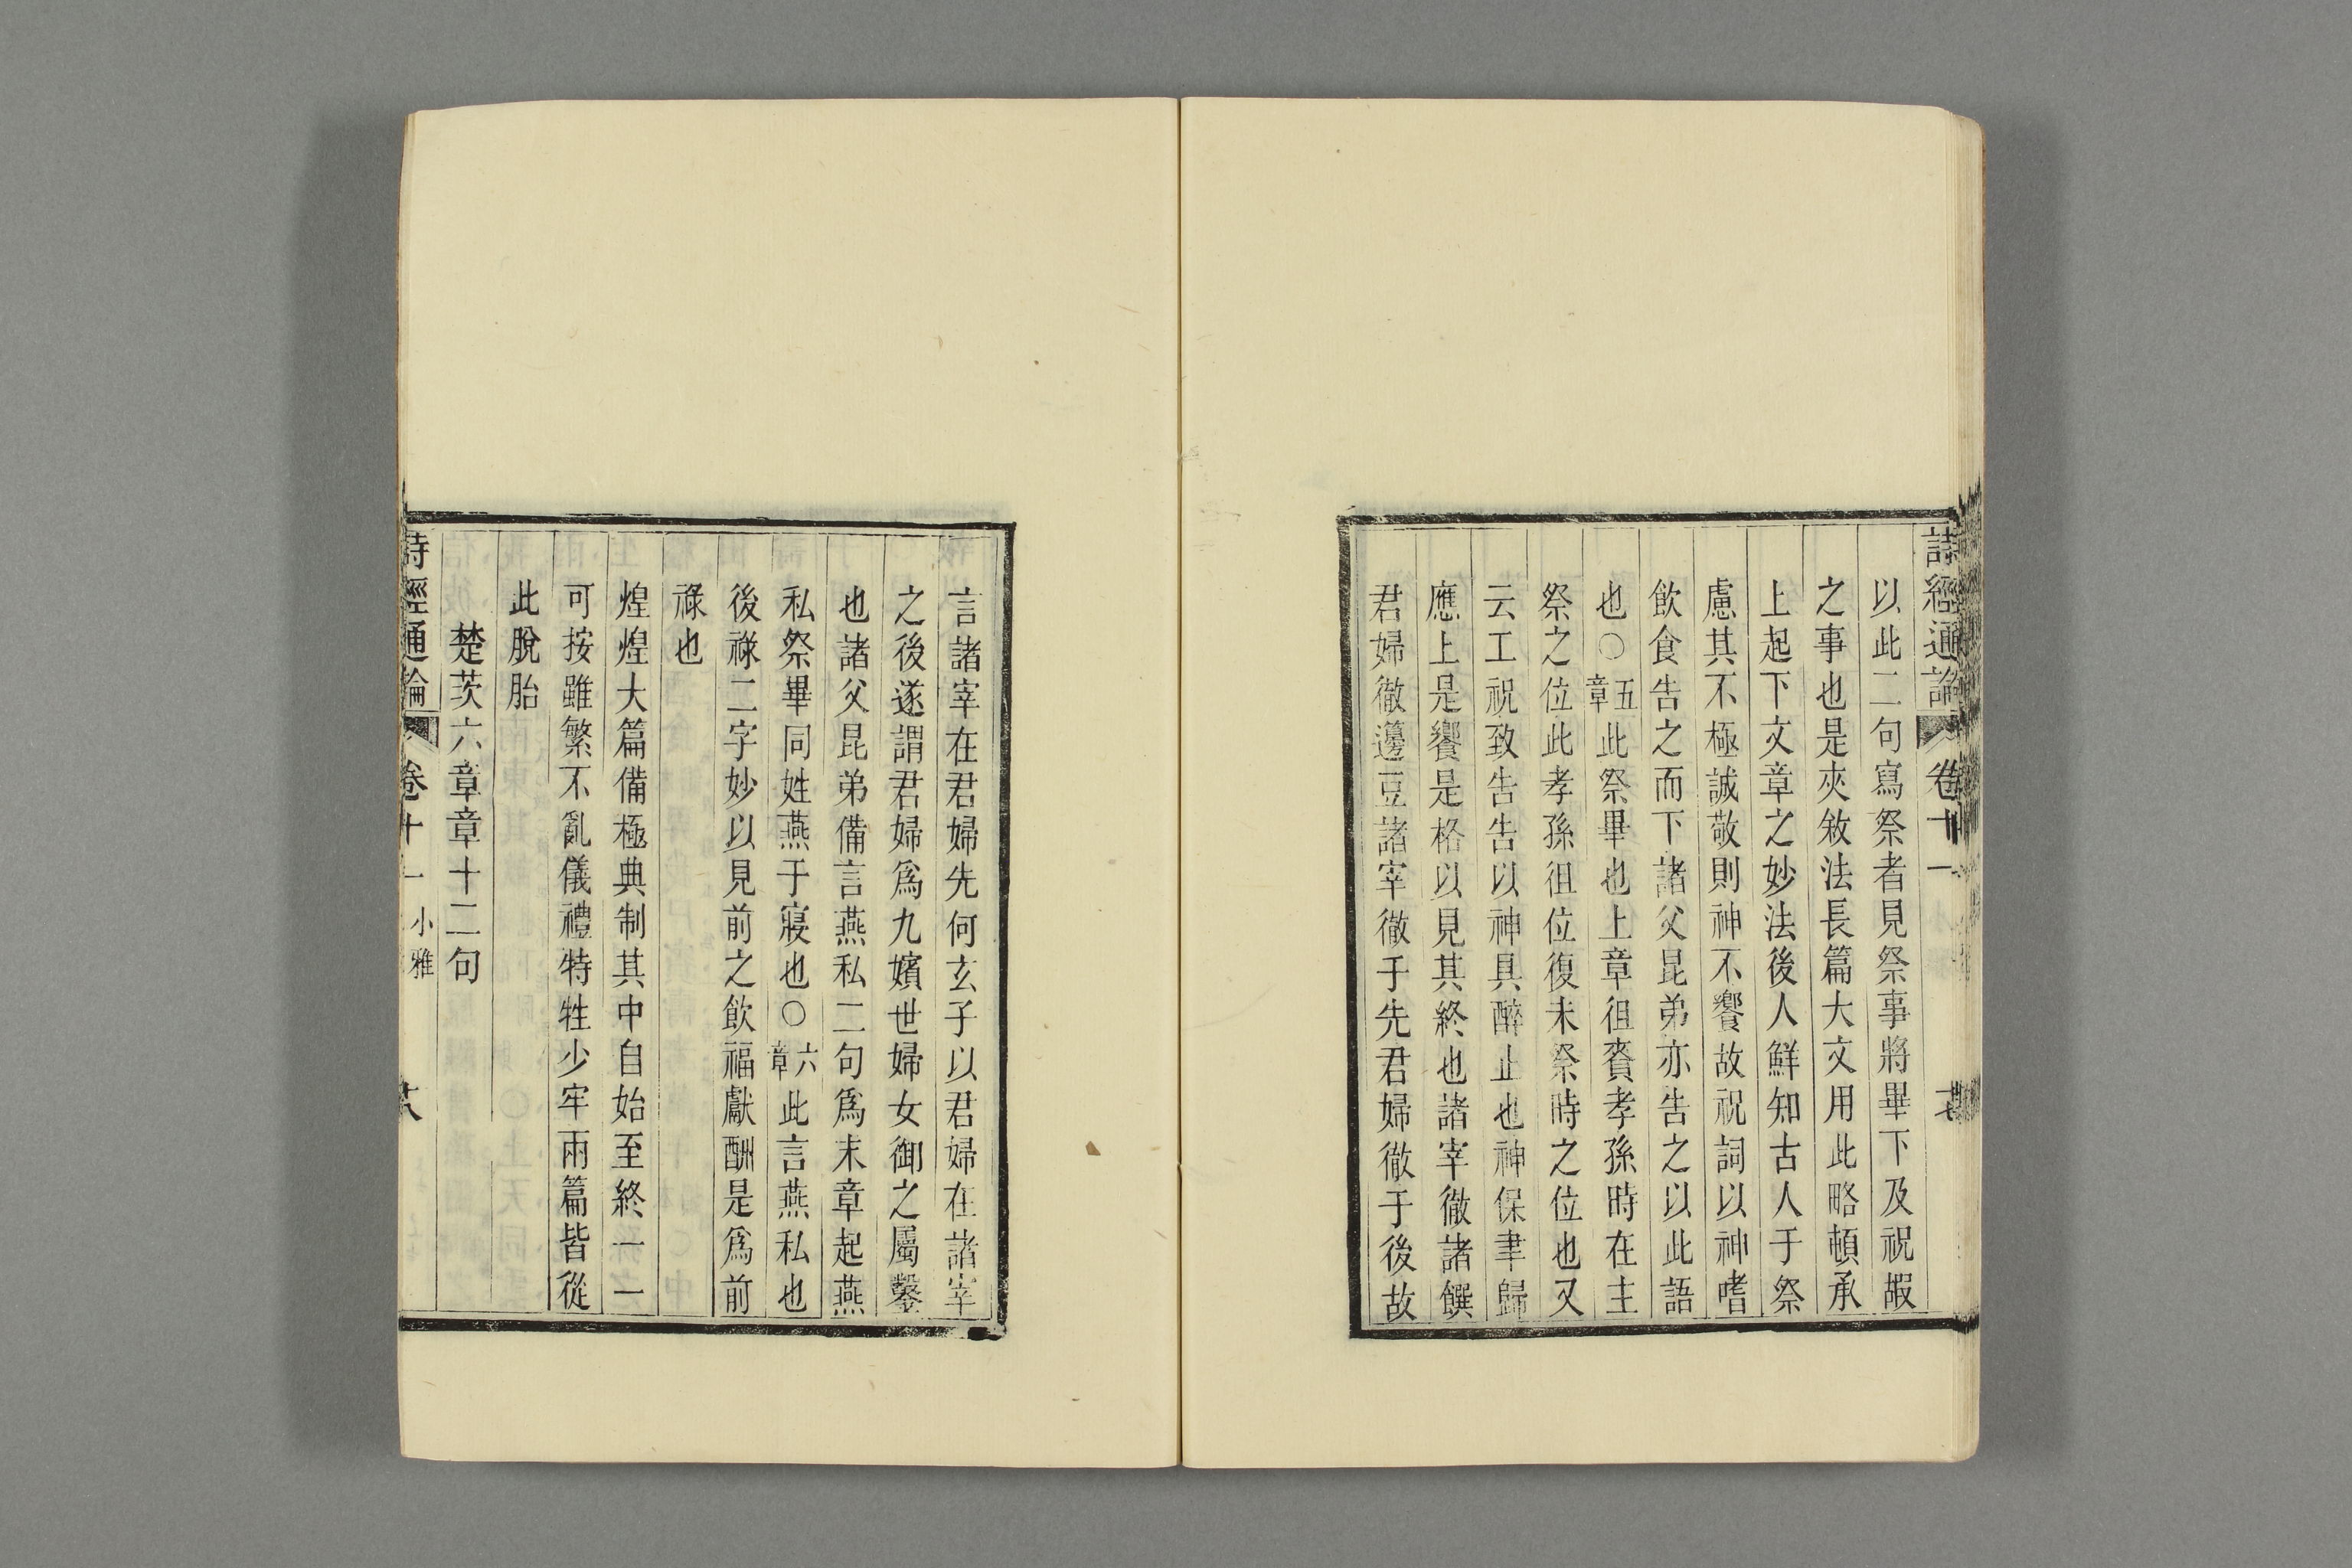 詩經通論 卷十一 廿七
以此二句寫祭者見祭事將畢下及祝嘏
之事也是夾敘法長篇大文用此略頓承
上起下文章之妙法後人鮮知古人于祭
慮其不極誠敬則神不饗故祝詞以神嗜
飲食告之而下諸父昆弟亦告之以此語
也○五章此祭畢也上章徂賚孝孫時在主
祭之位此孝孫徂位復未祭時之位也又
云工祝致告告以神具醉止也神保聿歸
應上是饗是格以見其終也諸宰徹諸饌
君婦徹籩豆諸宰徹于先君婦徹于後故
言諸宰在君婦先何玄子以君婦在諸宰
之後遂謂君婦爲九嬪世婦女御之屬鑿
也諸父昆弟備言燕私二句爲末章起燕
私祭畢同姓燕于寢也○六章此言燕私也
後祿二字妙以見前之飲福獻酬是爲前
祿也
煌煌大篇備極典制其中自始至終一一
可按雖繁不亂儀禮特牲少牢兩篇皆從
此脫胎
楚茨六章章十二句
詩經通論 卷十一 小雅 廿八